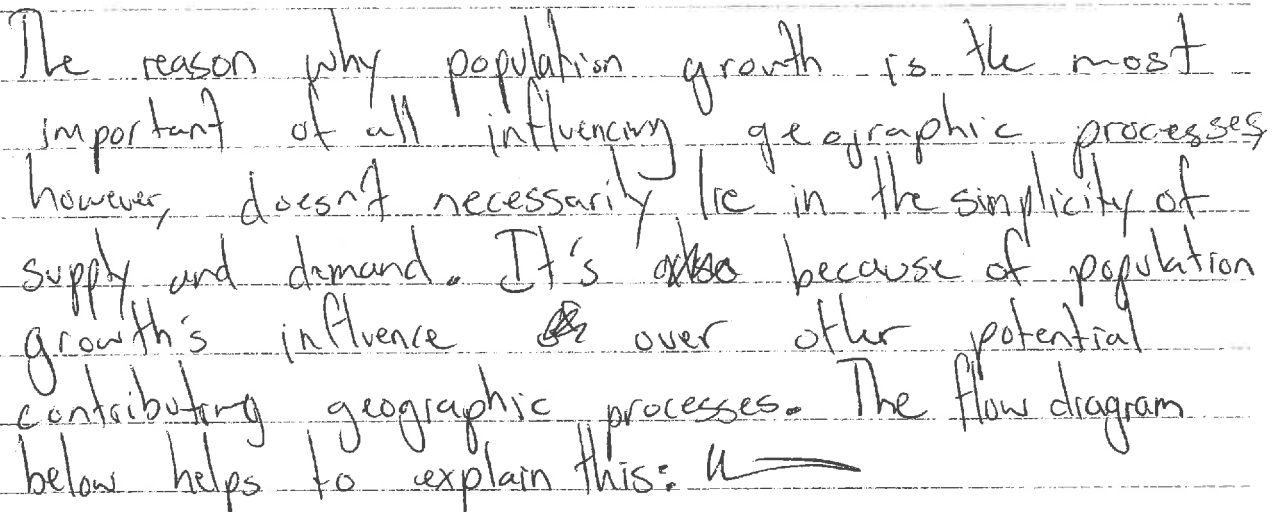 The reason why population growth is the most
important of all influencing geographic processes,
however, doesn't necessarily lie in the simplicity of
supply and demand. It's because of population
growth's influence over other potential
contributing geographic processes. The flow diagram
below helps to explain this: